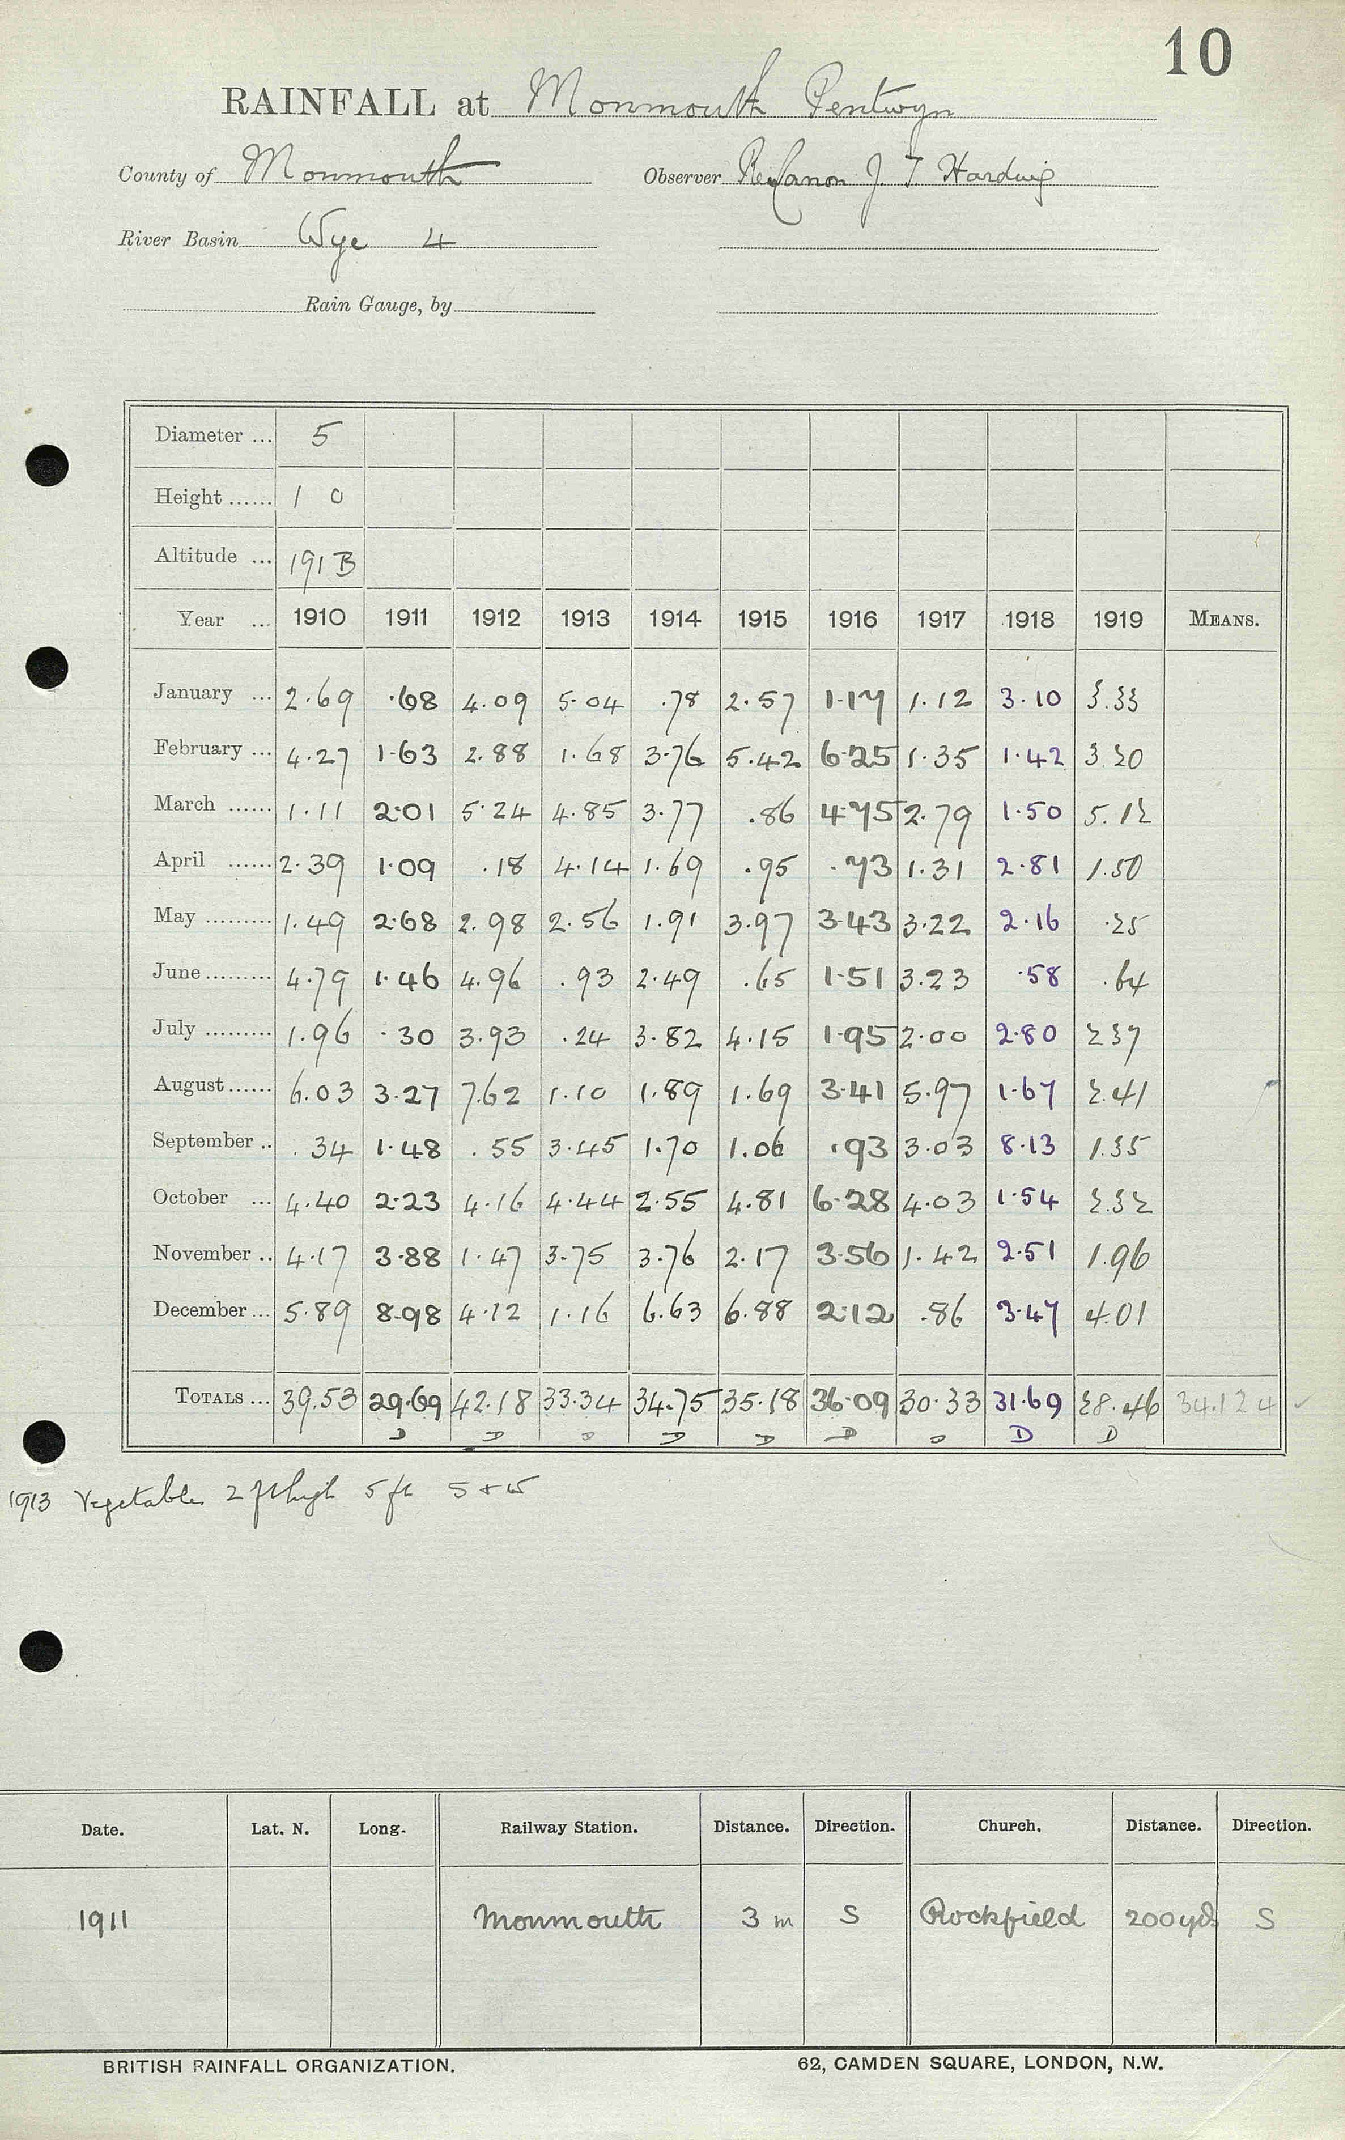 10
RAINFALL at Monmouth Pentwyn
County of Monmouth Observer Rev Canon J. T Harding
River Basin Wye 4
Rain Gauge, by
Diameter ... 5
Height ...... 1 0
Altitude ... 191 B
Year ... 1910 1911 1912 1913 1914 1915 1916 1917 1918 1919 MEANS.
January ... 2.69 .68 4.09 5.04 .78 2.57 1.17 1.12 3.10 3.33
February ... 4.27 1.63 2.88 1.68 3.76 5.42 6.25 1.35 1.42 3.20
March ...... 1.11 2.01 5.24 4.85 3.77 .86 4.75 2.79 1.50 5.12
April ...... 2.39 1.09 .18 4.14 1.69 .95 .73 1.31 2.81 1.50
May ......... 1.49 2.68 2.98 2.56 1.91 3.97 3.43 3.22 2.16 .25
June ......... 4.79 1.46 4.96 .93 2.49 .65 1.51 3.23 .58 .64
July ......... 1.96 .30 3.93 .24 3.82 4.15 1.95 2.00 2.80 2.37
August ...... 6.03 3.27 7.62 1.10 1.89 1.69 3.41 5.97 1.67 2.41
September .. .34 1.48 .55 3.45 1.70 1.06 .93 3.03 8.13 1.35
October ... 4.40 2.23 4.16 4.44 2.55 4.81 6.28 4.03 1.54 2.32
November .. 4.17 3.88 1.47 3.75 3.76 2.17 3.56 1.42 2.51 1.96
December ... 5.89 8.98 4.12 1.16 6.63 6.88 2.12 .86 3.47 4.01
TOTALS ... 39.53 29.69 42.18 33.34 34.75 35.18 36.09 30.33 31.69 28.46 34.124 ✓
D D D D D D D D D
1913 Vegetables 2 ft high 5 ft S + W
Date. Lat. N. Long. Railway Station. Distance. Direction. Church. Distance. Direction.
1911 Monmouth 3 m S Rockfield 200 yds S
BRITISH RAINFALL ORGANIZATION. 62, CAMDEN SQUARE, LONDON, N.W.